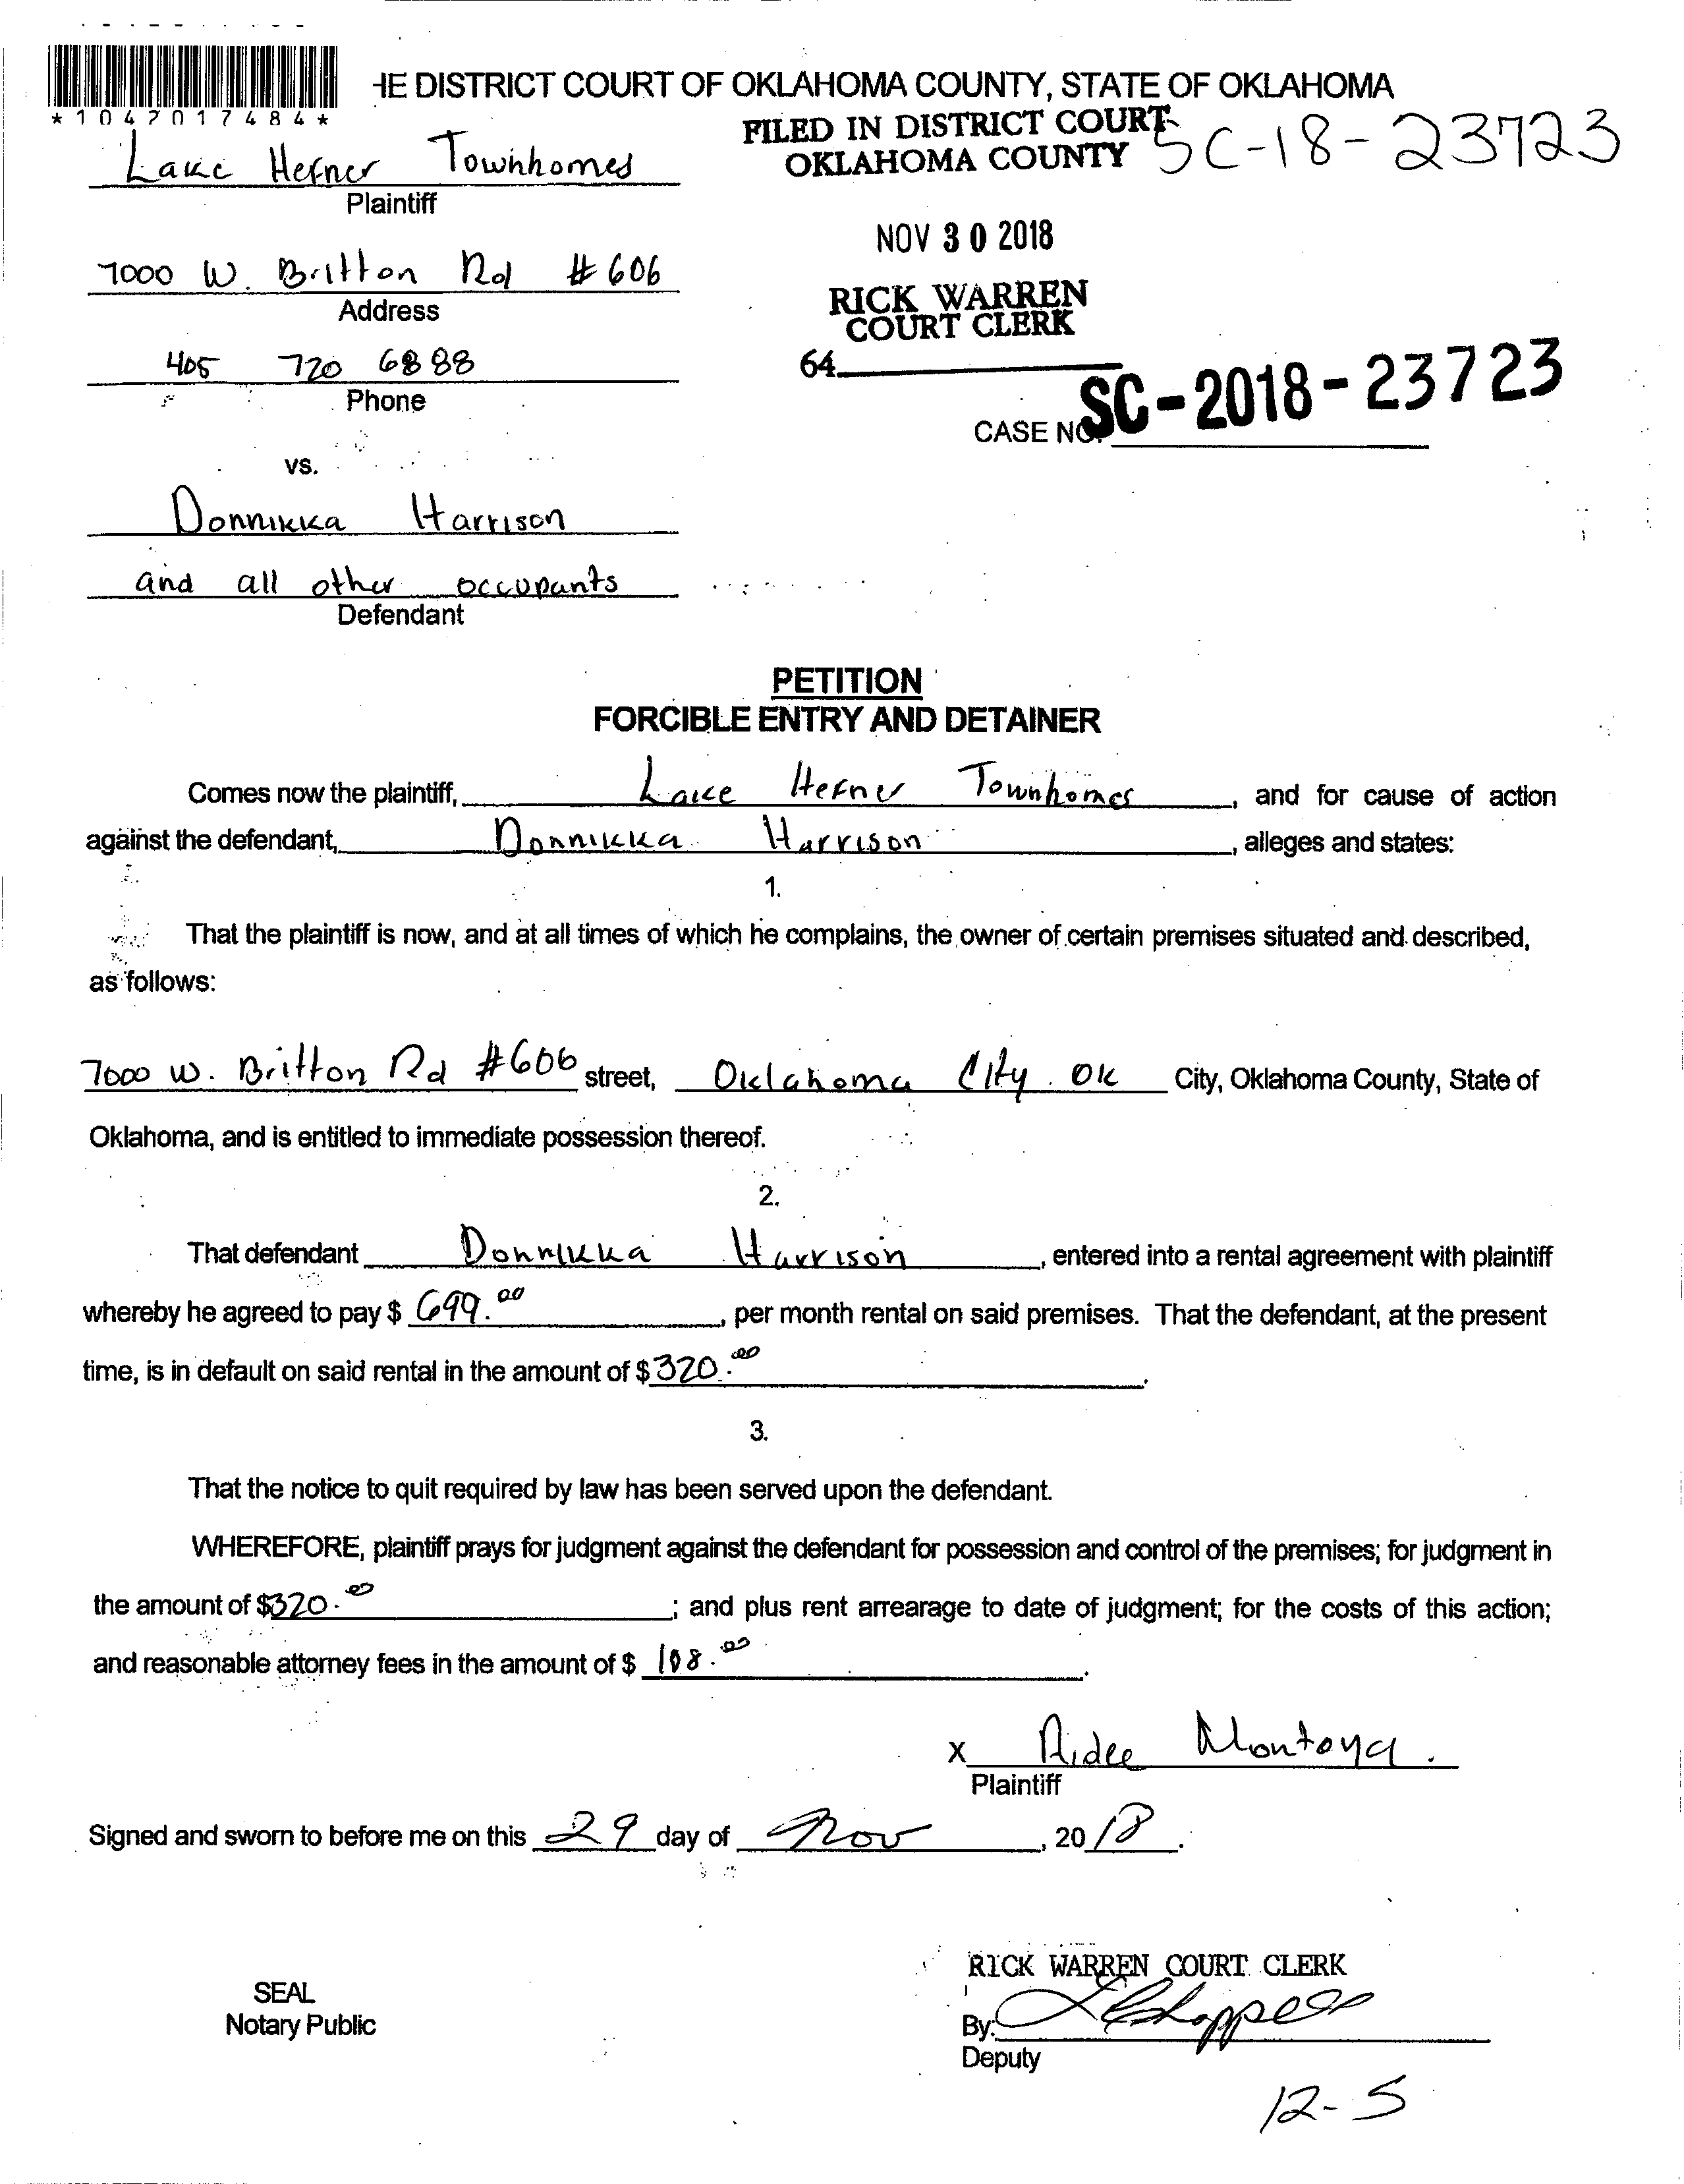 HE DISTRICT COURT OF OKLAHOMA COUNTY, STATE OF OKLAHOMA
*1047017484*
FILED IN DISTRICT COURT
OKLAHOMA COUNTY
SC-18-23723
Lake Hefner Townhomes
Plaintiff
NOV 30 2018
7000 W. Britton Rd #606
Address
RICK WARREN
COURT CLERK
405 720 6888
Phone
64
CASE NO. SC-2018-23723
vs.
Donnikka Harrison
and all other occupants
Defendant
PETITION
FORCIBLE ENTRY AND DETAINER
Comes now the plaintiff, Lake Hefner Townhomes, and for cause of action
against the defendant, Donnikka Harrison, alleges and states:
1.
That the plaintiff is now, and at all times of which he complains, the owner of certain premises situated and described,
as follows:
7000 W. Britton Rd #606 street, Oklahoma City OK City, Oklahoma County, State of
Oklahoma, and is entitled to immediate possession thereof.
2.
That defendant Donnikka Harrison, entered into a rental agreement with plaintiff
whereby he agreed to pay $ 699.00, per month rental on said premises. That the defendant, at the present
time, is in default on said rental in the amount of $ 320.00.
3.
That the notice to quit required by law has been served upon the defendant.
WHEREFORE, plaintiff prays for judgment against the defendant for possession and control of the premises; for judgment in
the amount of $320.00; and plus rent arrearage to date of judgment; for the costs of this action;
and reasonable attorney fees in the amount of $ 108.00.
X Aidee Montoya.
Plaintiff
Signed and sworn to before me on this 29 day of Nov, 2018.
RICK WARREN COURT CLERK
SEAL
Notary Public
By:
Deputy
12-5